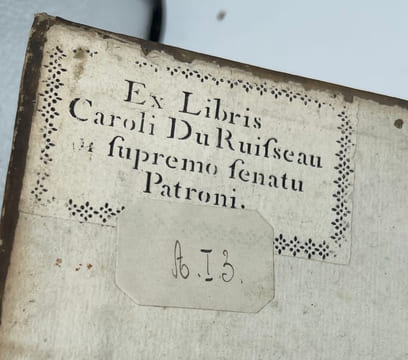 Ex Libris
Caroli DuRuiſseau
in ſupremo ſenatu
Patroni.
A.I.3.